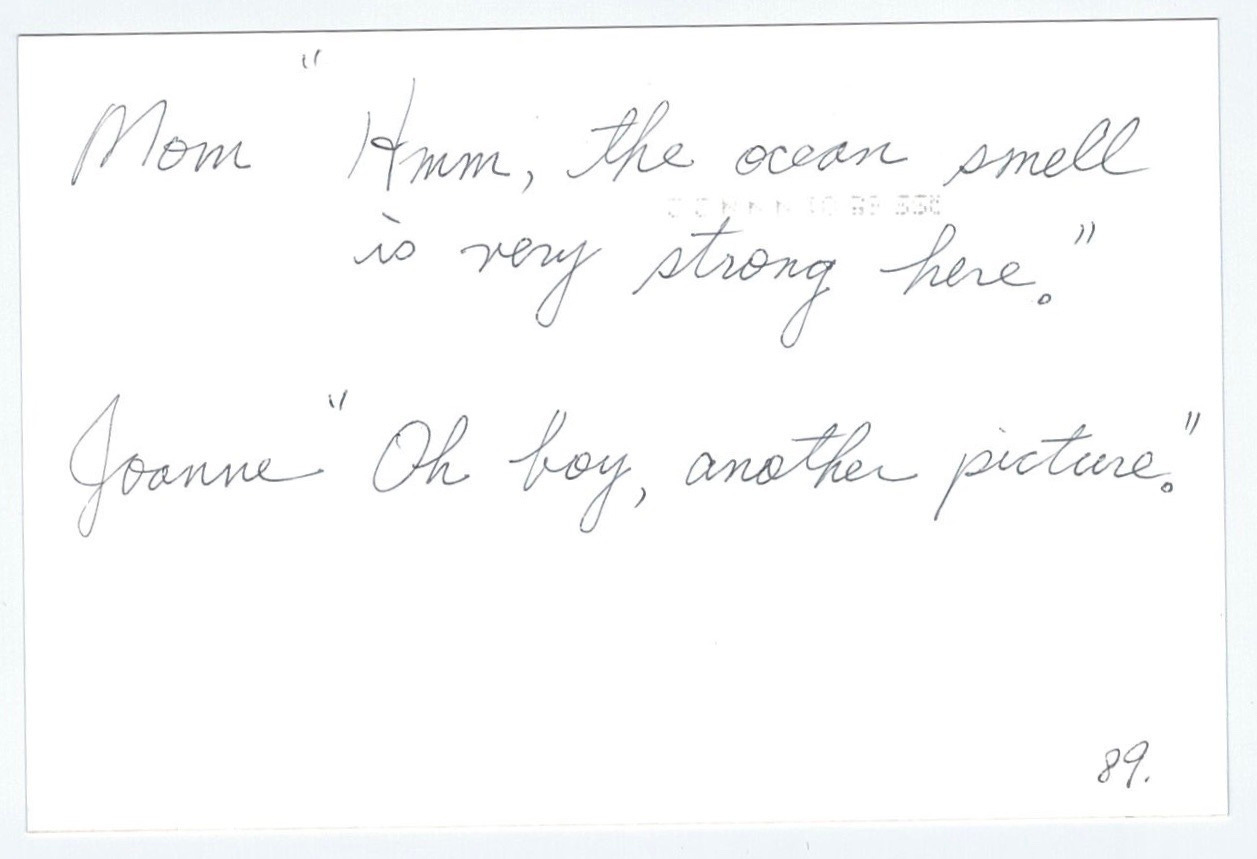 Mom " Hmm, the ocean smell
is very strong here."
Joanne " Oh boy, another picture."
89.